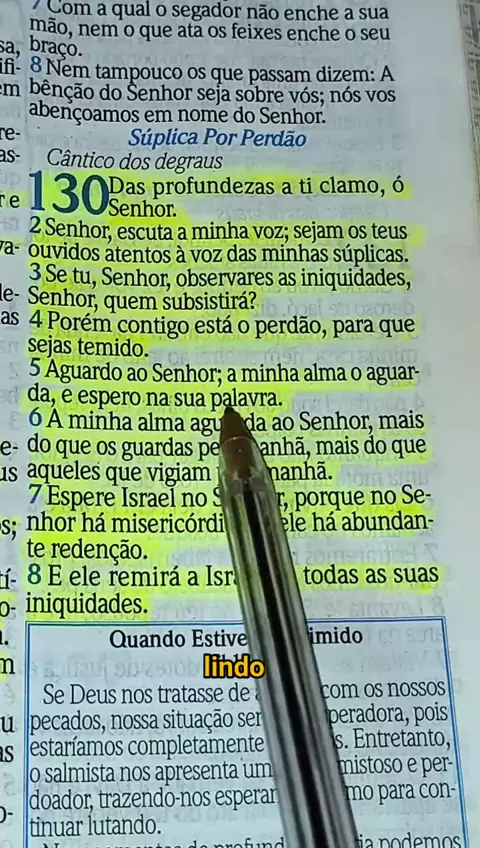 7 Com a qual o segador não enche a sua
mão, nem o que ata os feixes enche o seu
braço.
8 Nem tampouco os que passam dizem: A
bênção do Senhor seja sobre vós; nós vos
abençoamos em nome do Senhor.
Súplica Por Perdão
Cântico dos degraus
130 Das profundezas a ti clamo, ó
Senhor.
2 Senhor, escuta a minha voz; sejam os teus
ouvidos atentos à voz das minhas súplicas.
3 Se tu, Senhor, observares as iniquidades,
Senhor, quem subsistirá?
4 Porém contigo está o perdão, para que
sejas temido.
5 Aguardo ao Senhor; a minha alma o aguar-
da, e espero na sua palavra.
6 A minha alma aguarda ao Senhor, mais
do que os guardas pe anhã, mais do que
aqueles que vigiam manhã.
7 Espere Israel no S r, porque no Se-
nhor há misericórdi ele há abundan-
te redenção.
8 E ele remirá a Isr todas as suas
iniquidades.
Quando Estive imido
lindo
Se Deus nos tratasse de com os nossos
pecados, nossa situação ser peradora, pois
estaríamos completamente s. Entretanto,
o salmista nos apresenta um mistoso e per-
doador, trazendo-nos esperan mo para con-
tinuar lutando.
podemos